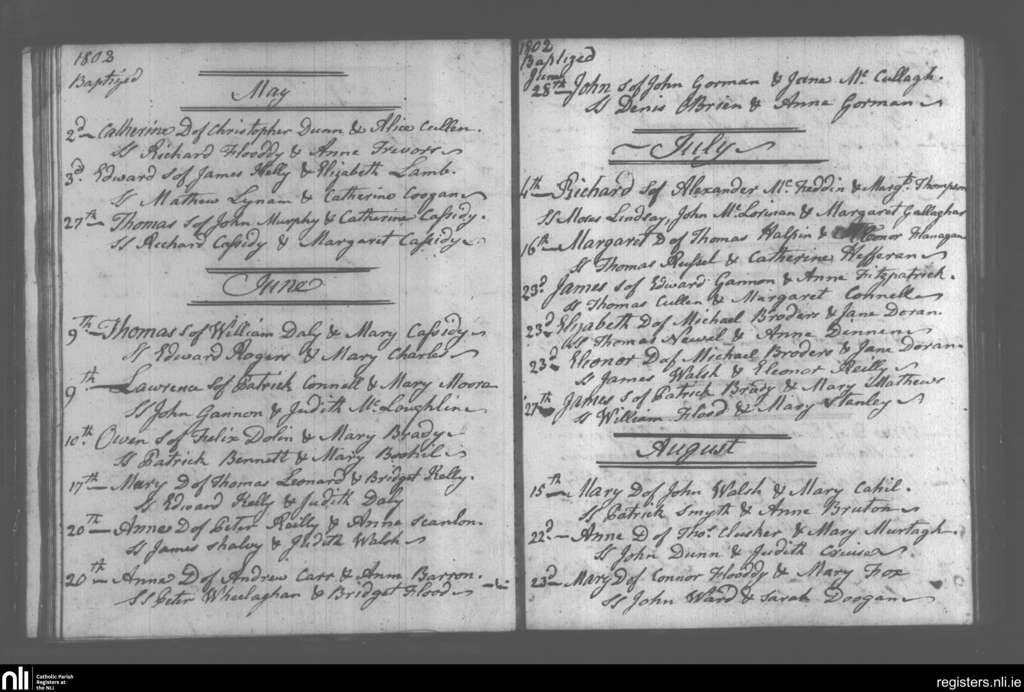 1802
Baptized
May
2d Catherine D of Christopher Dunn & Alice Cullen.
Ss Richard Flooddy & Anne Trevors
3d. Edward S of James Kelly & Elizabeth Lamb.
Ss Mathew Lynam & Catherine Coogan
27th Thomas S of John Murphy & Catherine Cassidy.
Ss Richard Cassidy & Margaret Cassidy
June
9th Thomas S of William Daly & Mary Cassidy
Ss Edward Rogers & Mary Charles
9th Lawrence S of Patrick Connell & Mary Moora
Ss John Gannon & Judith Mc Loughlin
10th. Owen S of Felix Dolin & Mary Brady
Ss Patrick Bennett & Mary
17th Mary D of Thomas Leonard & Bridget Kelly.
Ss Edward Kelly & Judith Daly
20th Anne D of Peter Reilly & Anne Scanlon.
Ss James Shalvy & Judith Walsh
20th Anne D of Andrew Carr & Anne Barron.
Ss Peter Wheelaghan & Bridget Flood
1802
Baptized
June
28th John S of John Gorman & Jane Mc Cullagh.
Ss Denis OBrien & Anne Gorman
July
4th Richard S of Alexander Mc Feddin & Margt. Thompson
Ss Moses Lindsay, John Mc Lorinan & Margaret Gallaghar
16th Margaret D of Thomas Halpin & Elleonor Flanagan
Ss Thomas Russel & Catherine Hefferan
23d James S of Edward Gannon & Anne Fitzpatrick.
Ss Thomas Cullen & Margaret Connell
23d Elizabeth D of Michael Broders & Jane Doran.
Ss Thomas Newel & Anne Dennen
23d Eleonor D of Michael Broders & Jane Doran
Ss James Walsh & Eleonor Reilly
27th James S of Patrick Brady & Mary Mathews
Ss William Flood & Mary Stanley
August
15th Mary D of John Walsh & Mary Cahil.
Ss Patrick Smyth & Anne Bruton
22d Anne D of Thos. Clusker & Mary Murtagh
Ss John Dunn & Judith
23d Mary D of Connor Flooddy & Mary Fox
Ss John Ward & Sarah Doogan
nli
Catholic Parish
Registers at
the NLI
registers.nli.ie